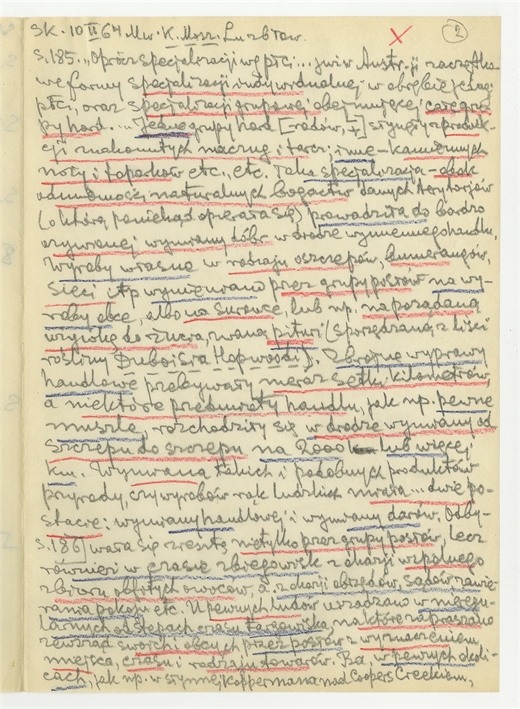 SK. 10 II 64 Mw. K. Mosz. Lu zb Tow. 2
s. 185. „Oprócz specjalizacji wg płci... jawi w Austr-ji zaczątko-
we formy specjalizacji indywidualnej w obrębie jednej
płci, oraz specjalizacji grupowej obejmującej całe gru-
py hord.... Jedne grupy hord [rodów, +] słynęły z produk-
cji znakomitych maczug i tarcz; inne – kamiennych
noży i toporków etc., etc. Taka specjalizacja – obok
odmienności naturalnych bogactw danych terytoriów
(o którą poniekąd opierała się) prowadziła do bardzo
ożywionej wymiany dóbr w drodze wymiennego handlu.
Wyroby własne w rodzaju oszczepów, bumerangów,
sieci itp wymieniano przez grupy posłów na wy-
roby obce, albo na surowce, lub np. na pożądaną
używkę do żucia, zwaną pitwi (sporządzaną z liści
rośliny Duboisia Hopwoodi). Zbrojne wyprawy
handlowe przebywały nieraz setki kilometrów,
a niektóre przedmioty handlu, jak np. pewne
muszle, rozchodziły się w drodze wymiany od
szczepu do szczepu na 2000 lub więcej
km. Wymiana takich i podobnych produktów
przyrody czy wyrobów rąk ludzkich miała... dwie po-
stacie: wymiany handlowej i wymiany darów. Odby-
s. 186 wała się zresztą nie tylko przez grupy posłów, lecz
również w czasie zbiegowisk z okazji wspólnego
zbioru obfitych owoców, a z okazji obrzędów, sądów, zawie-
rania pokoju etc. U pewnych ludów urządzano w niereg-
ularnych odstępach czasu targowiska, na które zapraszano
zewsząd swoich i obcych przez posłów z wyznaczeniem
miejsca, czasu i rodzaju towarów. Ba, w pewnych okoli-
cach, jak np. w słynnej Kopperamana nad Coopers Creekiem,